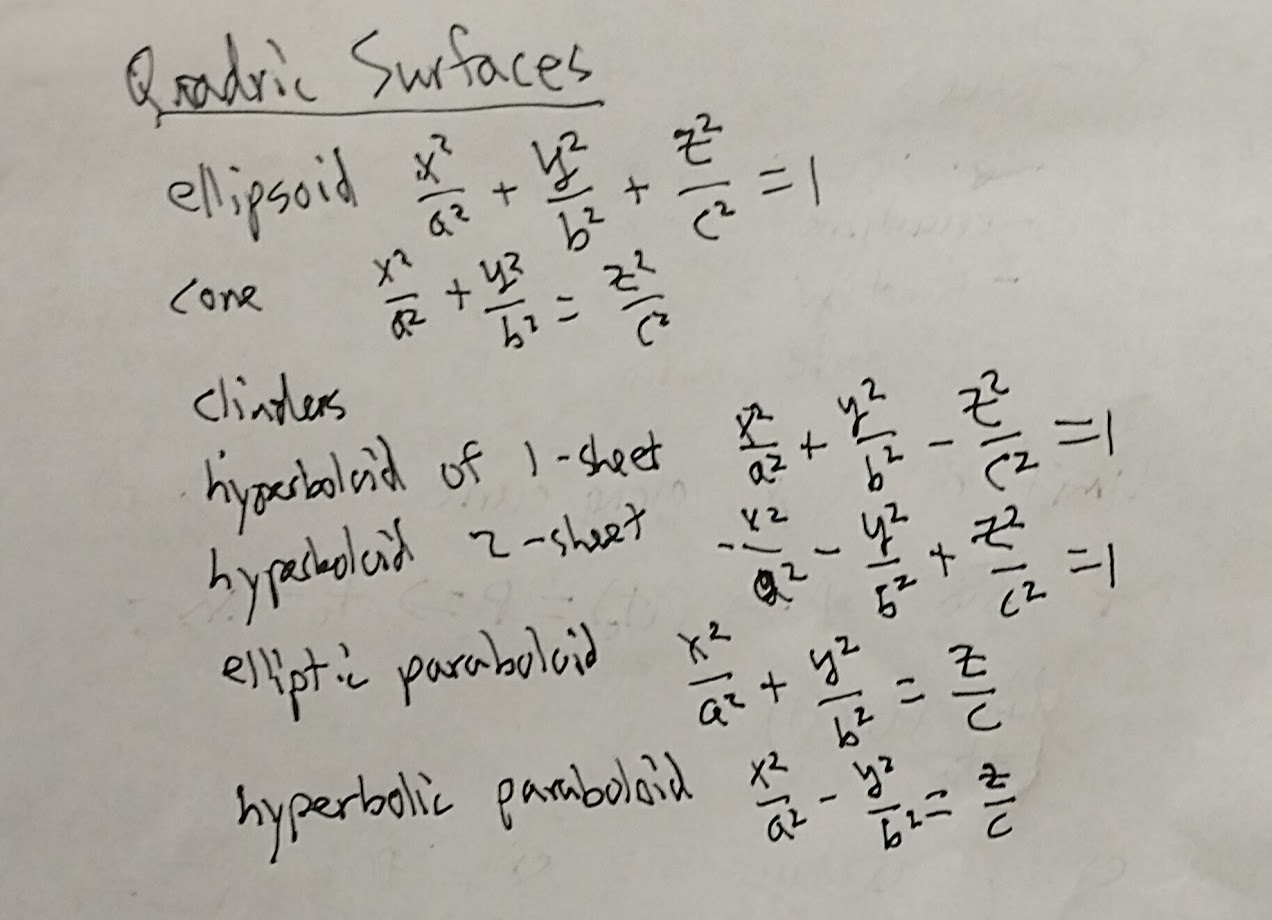 Quadric Surfaces
ellipsoid x²/a² + y²/b² + z²/c² = 1
cone x²/a² + y²/b² = z²/c²
clinders
hyperboloid of 1-sheet x²/a² + y²/b² - z²/c² = 1
hyperboloid 2-sheet -x²/a² - y²/b² + z²/c² = 1
elliptic paraboloid x²/a² + y²/b² = z/c
hyperbolic paraboloid x²/a² - y²/b² = z/c